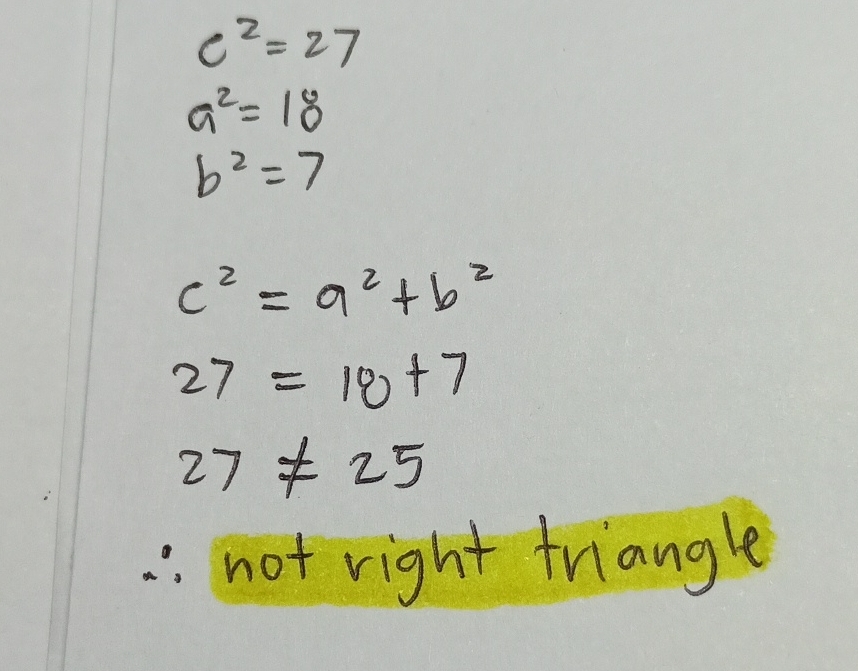 c²=27
a²=18
b²=7
c² = a²+b²
27 = 18+7
27 ≠ 25
∴ not right triangle